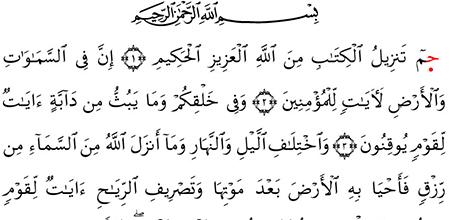 بِسْمِ ٱللَّهِ ٱلرَّحْمَٰنِ ٱلرَّحِيمِ
حمٓ تَنزِيلُ ٱلْكِتَٰبِ مِنَ ٱللَّهِ ٱلْعَزِيزِ ٱلْحَكِيمِ ﴿١﴾ إِنَّ فِى ٱلسَّمَٰوَٰتِ
وَٱلْأَرْضِ لَأٓيَٰتٍ لِّلْمُؤْمِنِينَ ﴿٢﴾ وَفِى خَلْقِكُمْ وَمَا يَبُثُّ مِن دَآبَّةٍ ءَايَٰتٌ
لِّقَوْمٍ يُوقِنُونَ ﴿٣﴾ وَٱخْتِلَٰفِ ٱلَّيْلِ وَٱلنَّهَارِ وَمَآ أَنزَلَ ٱللَّهُ مِنَ ٱلسَّمَآءِ مِن
رِّزْقٍ فَأَحْيَا بِهِ ٱلْأَرْضَ بَعْدَ مَوْتِهَا وَتَصْرِيفِ ٱلرِّيَٰحِ ءَايَٰتٌ لِّقَوْمٍ